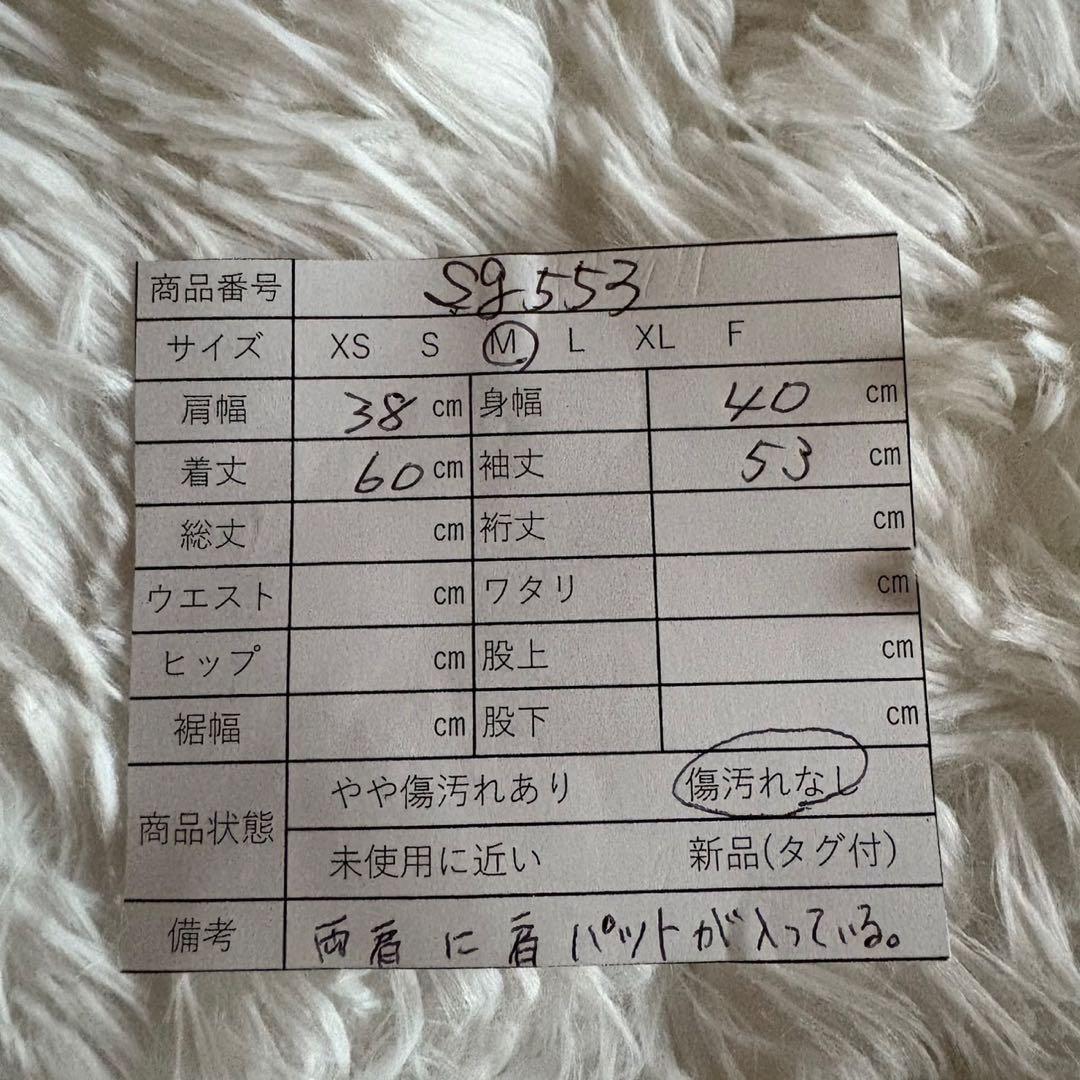 商品番号 sg553
サイズ XS S M L XL F
肩幅 38 cm 身幅 40 cm
着丈 60 cm 袖丈 53 cm
総丈 cm 裄丈 cm
ウエスト cm ワタリ cm
ヒップ cm 股上 cm
裾幅 cm 股下 cm
商品状態 やや傷汚れあり 傷汚れなし
未使用に近い 新品(タグ付)
備考 両肩に肩パットが入っている。